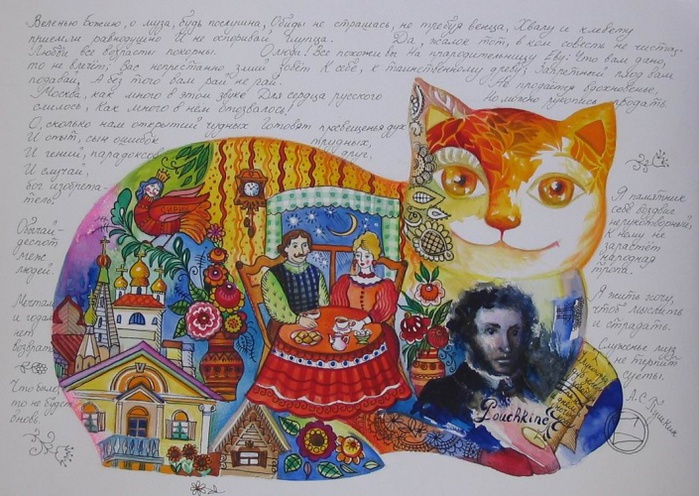 Веленью Божию, о муза, будь послушна, Обиды не страшась, не требуя венца, Хвалу и клевету
приемли равнодушно И не оспоривай глупца. Да, жалок тот, в ком совесть не чиста.
Любви все возрасты покорны. О люди! Все похожи вы На прародительницу Еву: Что вам дано,
то не влечёт; Вас непрестанно змий зовёт К себе, к таинственному древу; Запретный плод вам
подавай, А без того вам рай не рай. Не продаётся вдохновенье,
Москва, как много в этом звуке Для сердца русского Но можно рукопись продать.
слилось, Как много в нём отозвалось!
О, сколько нам открытий чудных Готовят просвещенья дух
И опыт, сын ошибок трудных,
И гений, парадоксов друг,
И случай,
бог изобрета-
тель.
Обычай -
деспот
меж
людей.
Мечтам
и годам
нет
возврата
Что было,
то не будет
вновь.
Я памятник
себе воздвиг
нерукотворный,
К нему не
зарастёт
народная
тропа.
Я жить хочу,
чтоб мыслить
и страдать.
Служенье муз
не терпит
суеты.
А.С. Пушкин
Pouchkine